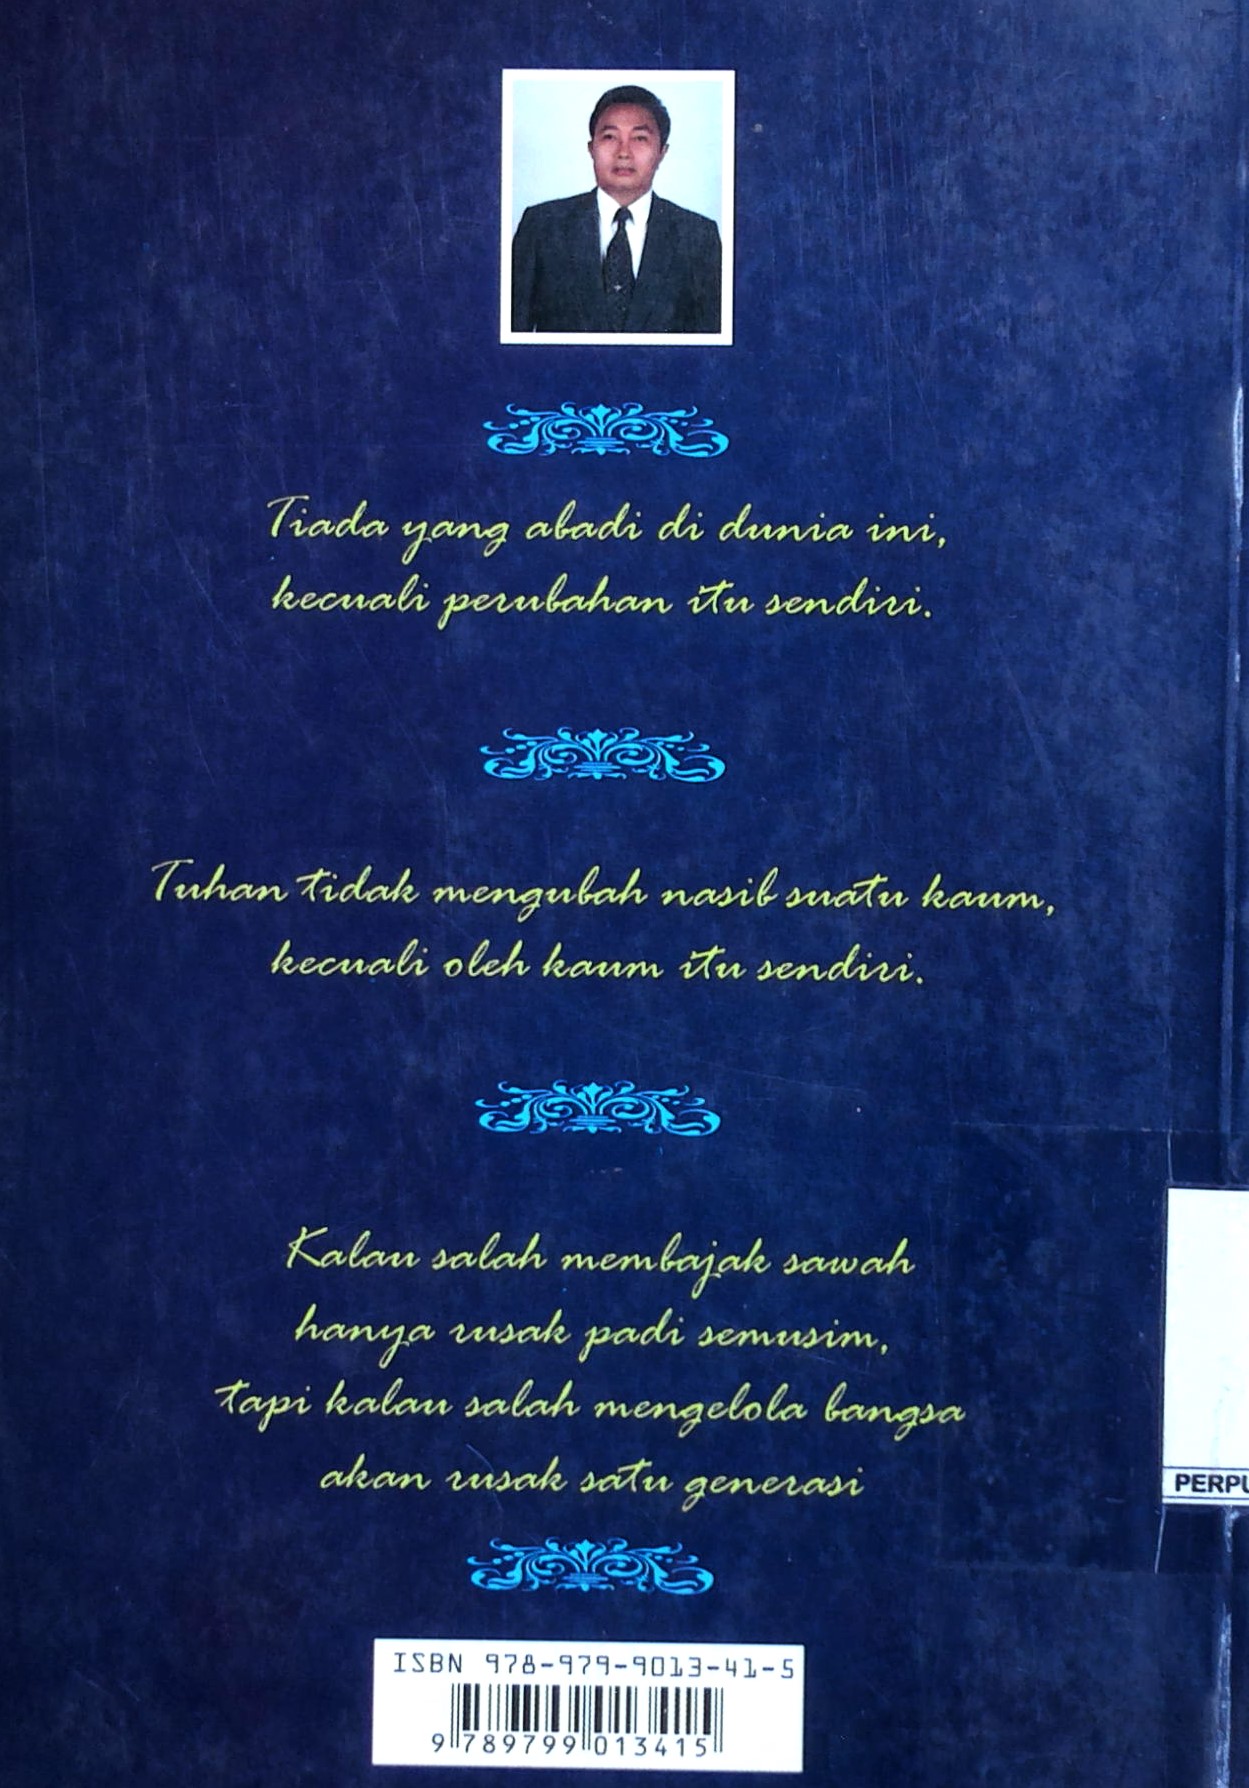 Tiada yang abadi di dunia ini,
kecuali perubahan itu sendiri.
Tuhan tidak mengubah nasib suatu kaum,
kecuali oleh kaum itu sendiri.
Kalau salah membajak sawah
hanya rusak padi semusim,
tapi kalau salah mengelola bangsa
akan rusak satu generasi
PERPU
ISBN 978-979-9013-41-5
9 789799 013415